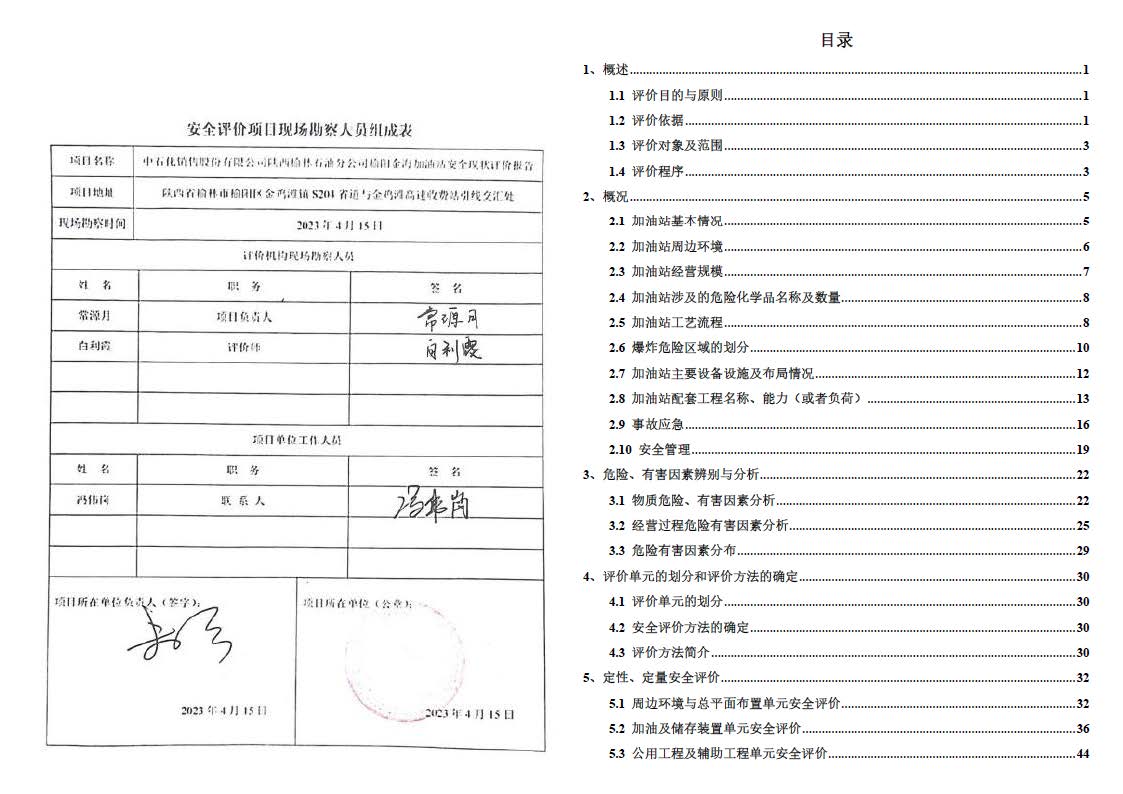 安全评价项目现场勘察人员组成表
项目名称 中石化销售股份有限公司陕西榆林石油分公司榆阳金海加油站安全现状评价报告
项目地址 陕西省榆林市榆阳区金鸡滩镇 S204 省道与金鸡滩高速收费站引线交汇处
现场勘察时间 2023 年 4 月 15 日
评价机构现场勘察人员
姓 名 职 务 签 名
常源月 项目负责人 常源月
白利霞 评价师 白利霞
项目单位工作人员
姓 名 职 务 签 名
冯伟岗 联 系 人 冯伟岗
项目所在单位负责人（签字）：
2023 年 4 月 15 日
项目所在单位（公章）：
2023 年 4 月 15 日
目录
1、概述 1
1.1 评价目的与原则 1
1.2 评价依据 1
1.3 评价对象及范围 3
1.4 评价程序 3
2、概况 5
2.1 加油站基本情况 5
2.2 加油站周边环境 6
2.3 加油站经营规模 7
2.4 加油站涉及的危险化学品名称及数量 8
2.5 加油站工艺流程 8
2.6 爆炸危险区域的划分 10
2.7 加油站主要设备设施及布局情况 12
2.8 加油站配套工程名称、能力（或者负荷） 13
2.9 事故应急 16
2.10 安全管理 19
3、危险、有害因素辨别与分析 22
3.1 物质危险、有害因素分析 22
3.2 经营过程危险有害因素分析 25
3.3 危险有害因素分布 29
4、评价单元的划分和评价方法的确定 30
4.1 评价单元的划分 30
4.2 安全评价方法的确定 30
4.3 评价方法简介 30
5、定性、定量安全评价 32
5.1 周边环境与总平面布置单元安全评价 32
5.2 加油及储存装置单元安全评价 36
5.3 公用工程及辅助工程单元安全评价 44